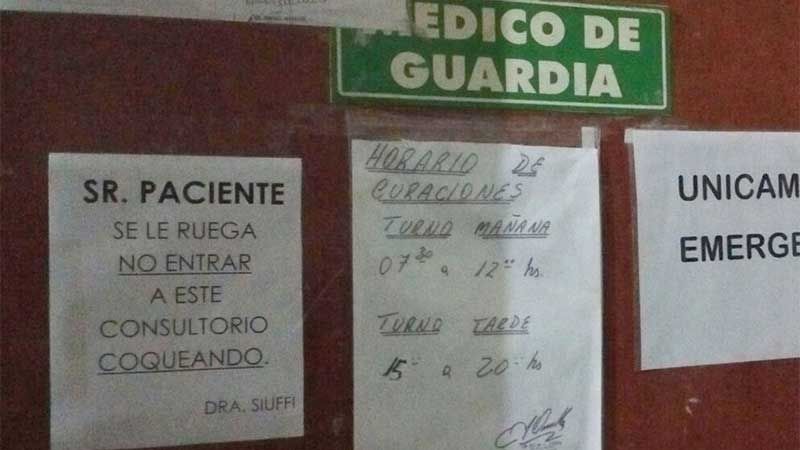 MEDICO DE
GUARDIA
SR. PACIENTE
SE LE RUEGA
NO ENTRAR
A ESTE
CONSULTORIO
COQUEANDO.
DRA. SIUFFI
HORARIO DE
CURACIONES
TURNO MAÑANA
07 30 a 12 00 hs.
TURNO TARDE
15 a 20 hs
UNICAM
EMERGE